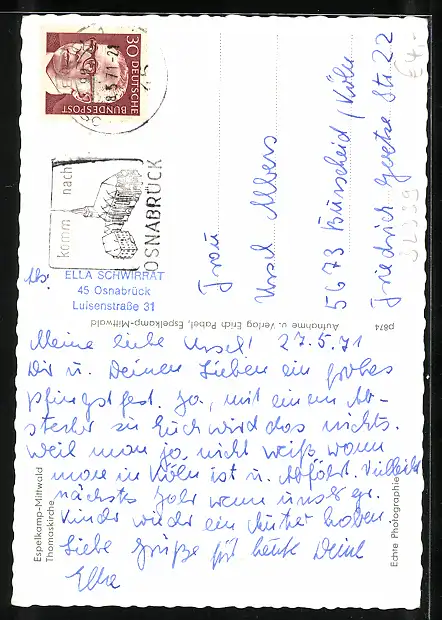 30
DEUTSCHE
BUNDESPOST
28.5.71-21
komm nach
OSNABRÜCK
Abs.
ELLA SCHWIRRAT
45 Osnabrück
Luisenstraße 31
Frau
Ursel Albers
5673 Burscheid/Köln
Friedrich Goetze Str. 22
€4,-
p874
Aufnahme u. Verlag Erich Pabel, Espelkamp-Mittwald
Meine liebe Ursel! 27.5.71
Dir u. Deinen Lieben ein frohes
Pfingstfest. Ja, mit einem Ab-
stecher zu Euch wird das nichts.
Weil man ja nicht weiß, wann
man in Köln ist u. Abfährt. Vielleicht
nächstes Jahr wenn unsere gr.
Kinder wieder ein Auto haben.
Liebe Grüße für heute Deine
Ella
Espelkamp-Mittwald
Thomaskirche
Echte Photographie